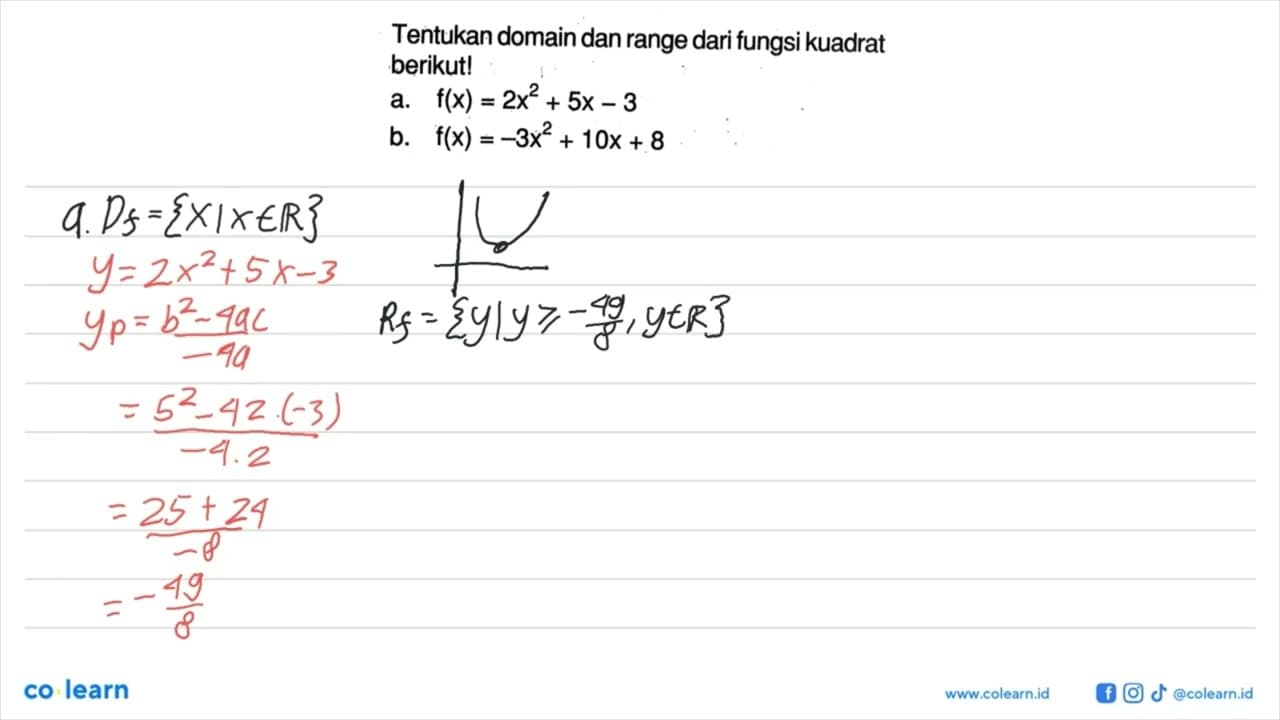 Tentukan domain dan range dari fungsi kuadrat
berikut!
a. f(x) = 2x² + 5x – 3
b. f(x) = –3x² + 10x + 8
a. Df = {x | x ∈ R}
y = 2x² + 5x – 3
yp = b² – 4ac
– 4a
= 5² – 4 2 · (–3)
– 4 . 2
= 25 + 24
– 8
= – 49
8
Rf = {y | y ≥ – 49/8 , y ∈ R}
co learn
www.colearn.id
@colearn.id